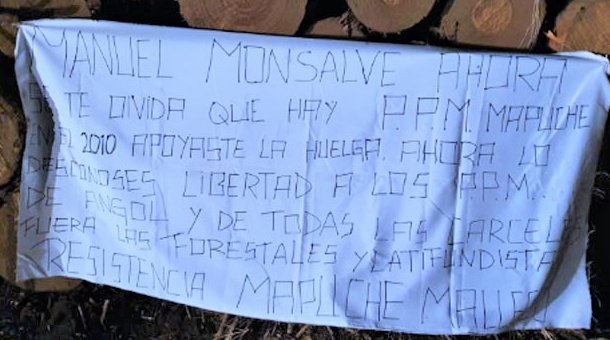 MANUEL MONSALVE AHORA
SE TE OLVIDA QUE HAY P.P.M. MAPUCHE
EN EL 2010 APOYASTE LA HUELGA. AHORA LO
DESCONOSES LIBERTAD A LOS P.P.M...
DE ANGOL Y DE TODAS LAS CARCELES
FUERA LAS FORESTALES Y LATIFUNDISTA
RESISTENCIA MAPUCHE MALLECO